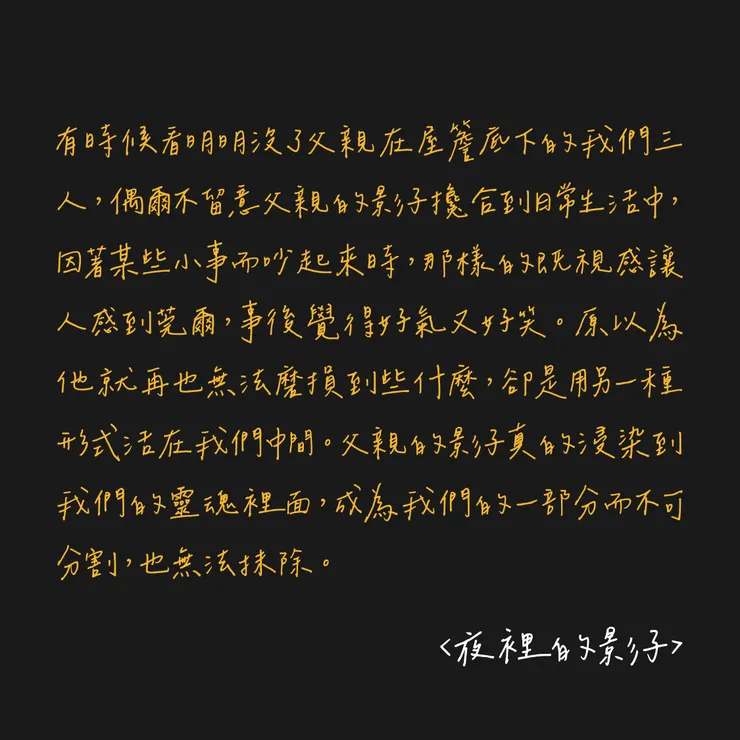 有時候看明明沒了父親在屋簷底下的我們三
人，偶爾不留意父親的影子攙合到日常生活中，
因著某些小事而吵起來時，那樣的既視感讓
人感到莞爾，事後覺得好氣又好笑。原以為
他就再也無法磨損到些什麼，卻是用另一種
形式活在我們中間。父親的影子真的浸染到
我們的靈魂裡面，成為我們的一部分而不可
分割，也無法抹除。
<夜裡的影子>